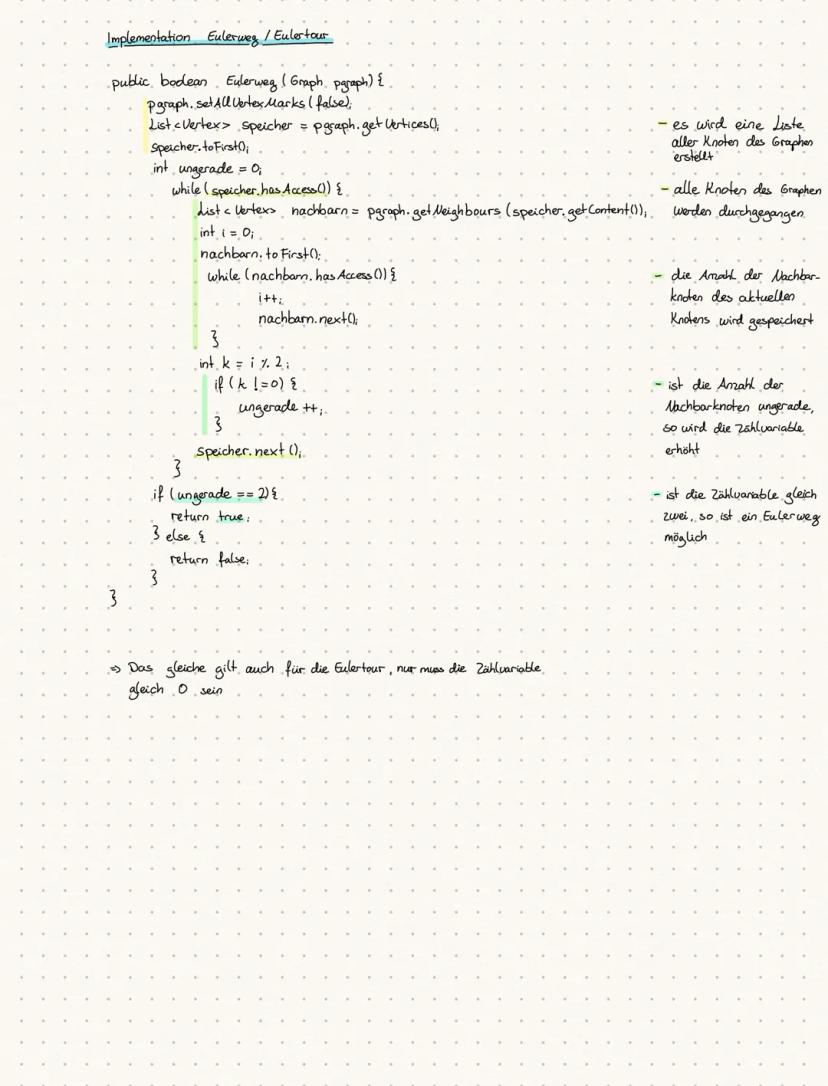 Implementation Eulerweg / Eulertour
public boolean Eulerweg ( Graph pgraph) {
pgraph.setAllVertexMarks (false);
List<Vertex> speicher = pgraph.getVertices();
speicher.toFirst();
int ungerade = 0;
while (speicher.hasAccess()) {
List<Vertex> nachbarn = pgraph.getNeighbours (speicher.getContent());
int i = 0;
nachbarn.toFirst();
while (nachbarn.hasAccess()) {
i++;
nachbarn.next();
}
int k = i % 2;
if (k !=0) {
ungerade ++;
}
speicher.next ();
}
if (ungerade == 2) {
return true;
} else {
return false;
}
}
- es wird eine Liste
aller Knoten des Graphen
erstellt
- alle Knoten des Graphen
werden durchgegangen
- die Anzahl der Nachbar-
knoten des aktuellen
Knotens wird gespeichert
- ist die Anzahl der
Nachbarknoten ungerade,
so wird die Zählvariable
erhöht
- ist die Zählvariable gleich
zwei, so ist ein Eulerweg
möglich
=> Das gleiche gilt auch für die Eulertour, nur muss die Zählvariable
gleich 0 sein